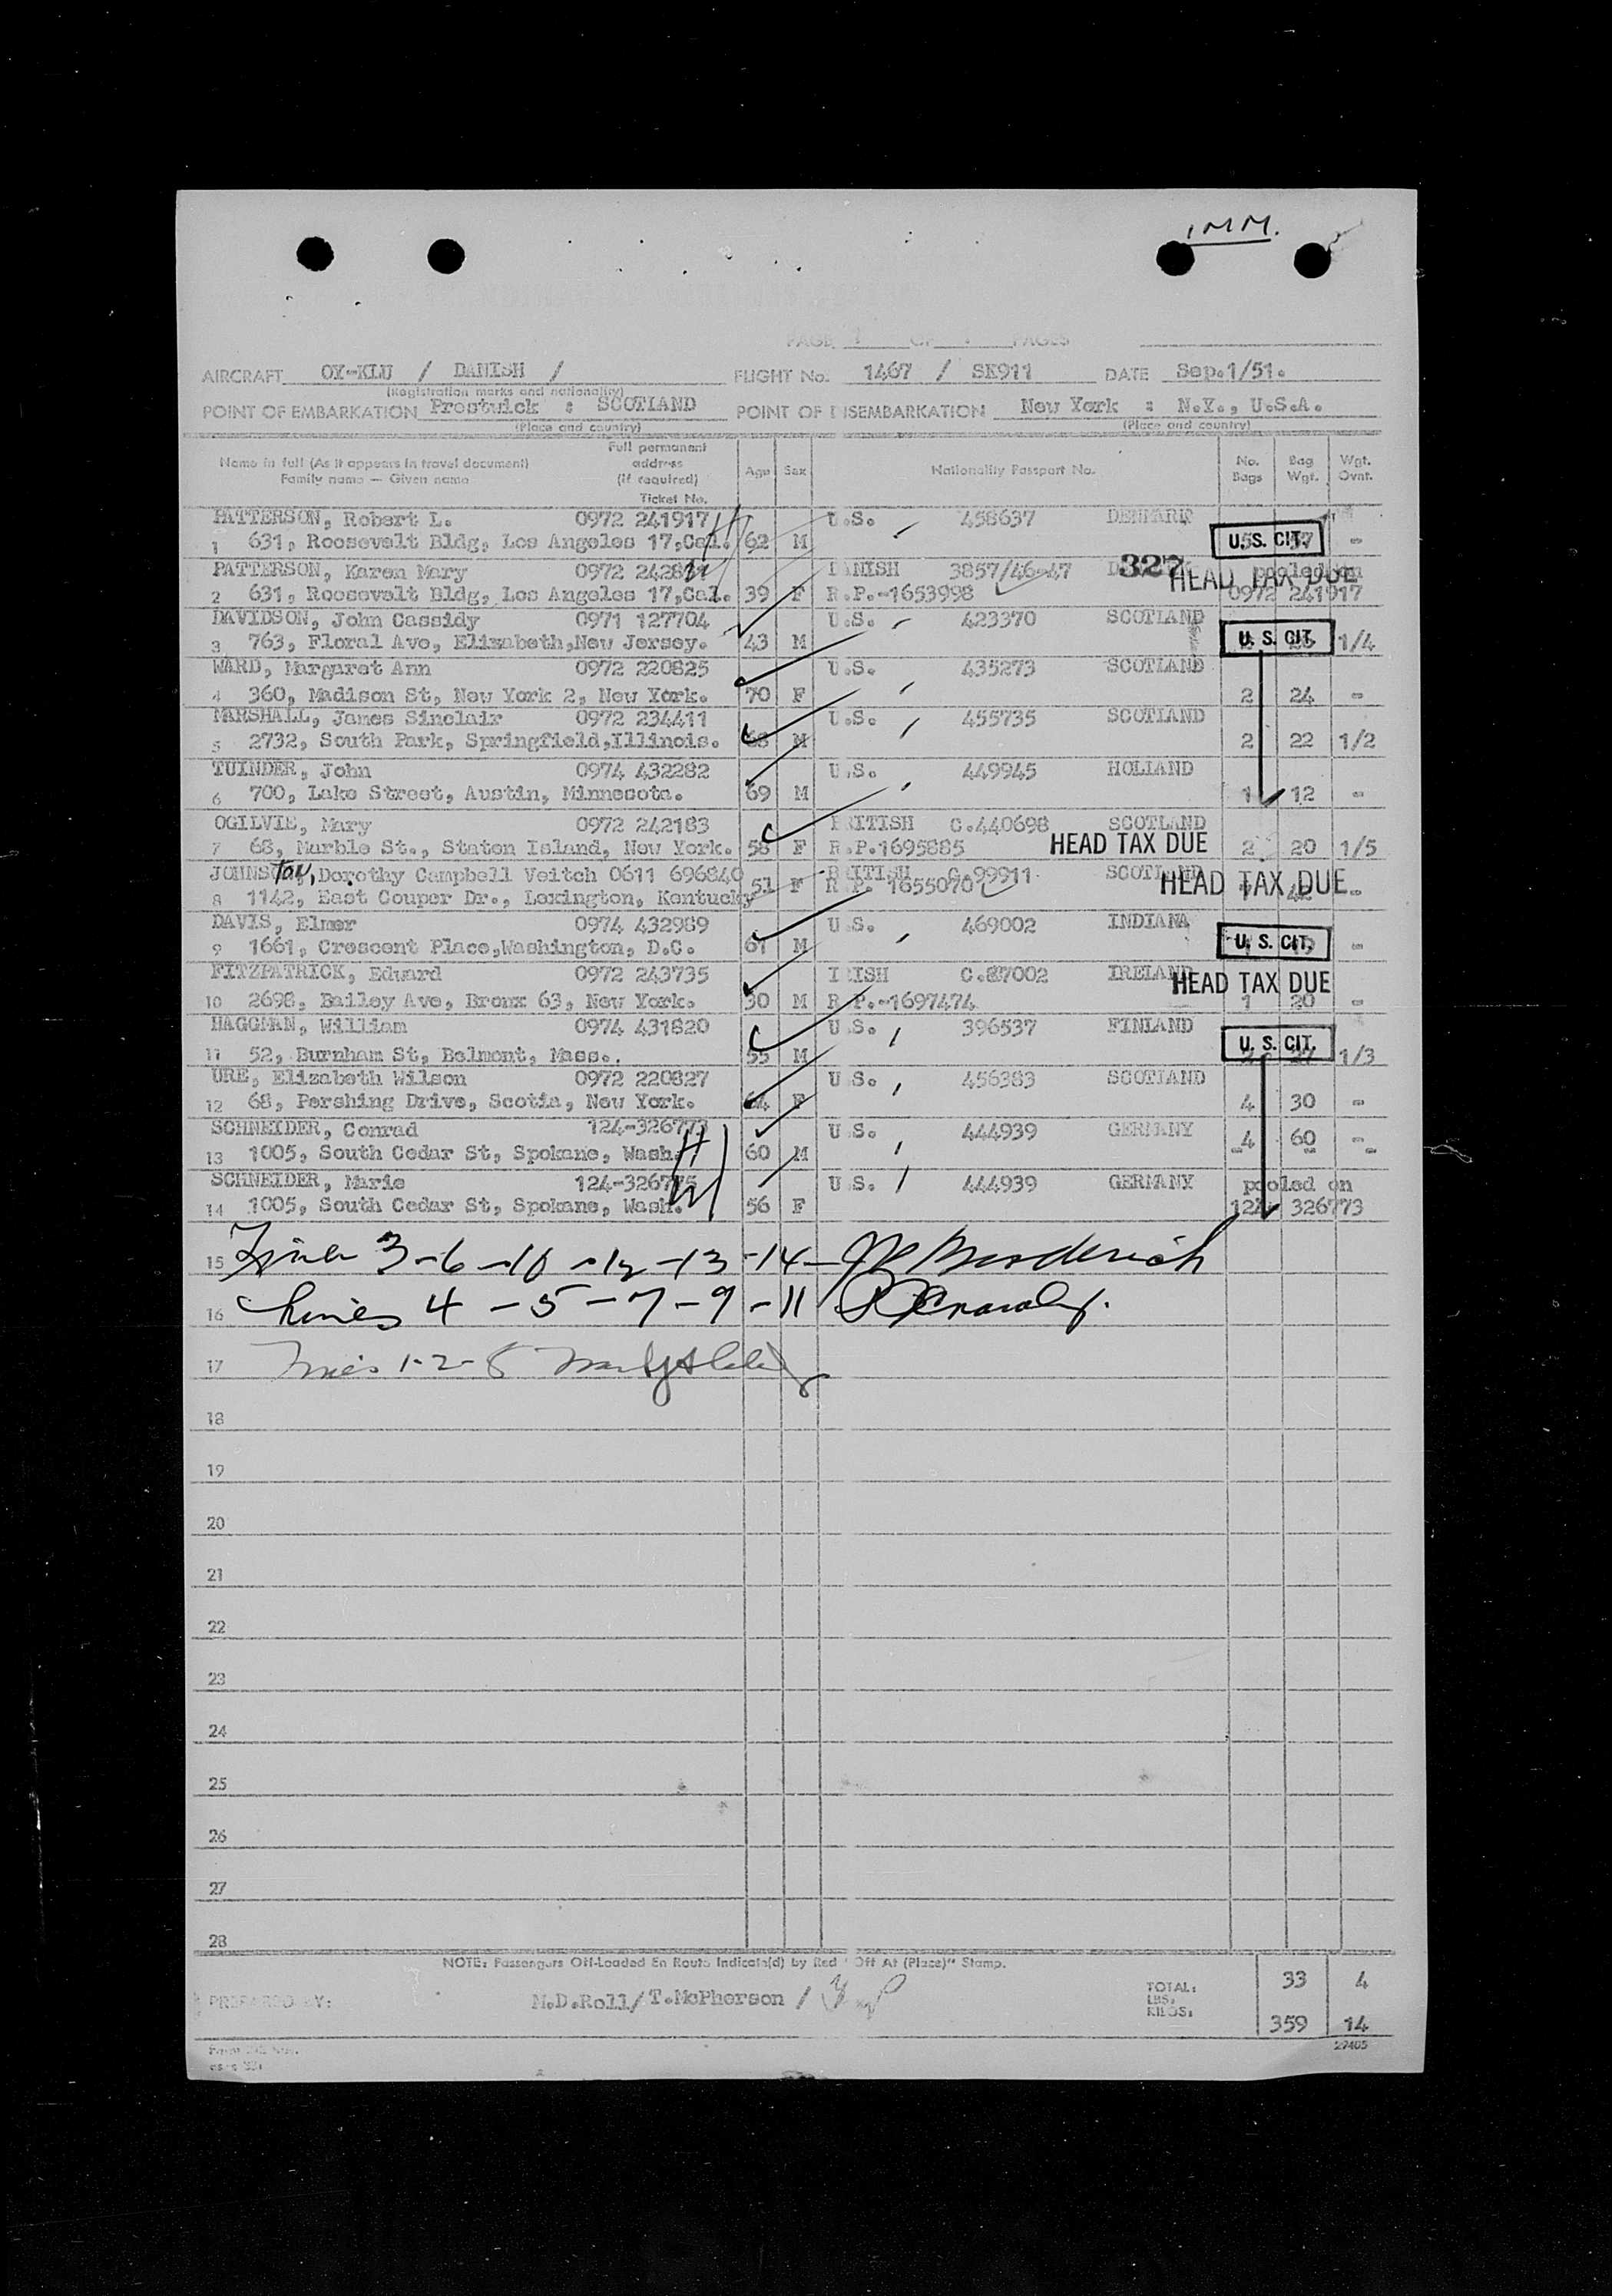 IMM.
PAGE 1 OF 1 PAGES
AIRCRAFT OY-KLU / DANISH / FLIGHT No. 1467 / SK911 DATE Sep.1/51.
(Registration marks and nationality)
POINT OF EMBARKATION Prestwick : SCOTLAND POINT OF DISEMBARKATION New York : N.Y., U.S.A.
(Place and country) (Place and country)
Name in full (As it appears in travel document) Family name — Given name Full permanent address (if required) Ticket No. Age Sex Nationality Passport No. No. Bags Bag Wgt. Wgt. Ovnt.
PATTERSON, Robert L. 0972 241917 U.S. 458637 DENMARK
1 631, Roosevelt Bldg, Los Angeles 17,Cal. 62 M U.S. CIT. -
PATTERSON, Karen Mary 0972 DANISH 3857/46-47 327 pooled on
HEAD TAX DUE
2 631, Roosevelt Bldg, Los Angeles 17,Cal. 39 F R.P.-1653998 0972 241917
DAVIDSON, John Cassidy 0971 127704 U.S. 423370 SCOTLAND
3 763, Floral Ave, Elizabeth,New Jersey. 43 M U. S. CIT. 1/4
WARD, Margaret Ann 0972 220825 U.S. 435273 SCOTLAND
4 360, Madison St, New York 2, New York. 70 F 2 24 -
MARSHALL, James Sinclair 0972 234411 U.S. 455735 SCOTLAND
5 2732, South Park, Springfield,Illinois. M 2 22 1/2
TUINDER, John 0974 432282 U.S. 449945 HOLLAND
6 700, Lake Street, Austin, Minnesota. 69 M 1 12 -
OGILVIE, Mary 0972 242183 BRITISH C.440698 SCOTLAND
7 68, Marble St., Staten Island, New York. 58 F R.P.1695885 HEAD TAX DUE 2 20 1/5
JOHNSTON, Dorothy Campbell Veitch 0611 696840 BRITISH C.99911 SCOTLAND
8 1142, East Couper Dr., Lexington, Kentucky 51 F R.P. 1655070 HEAD TAX DUE -
DAVIS, Elmer 0974 432989 U.S. 469002 INDIANA
9 1661, Crescent Place,Washington, D.C. 67 M U. S. CIT. -
FITZPATRICK, Edward 0972 243735 IRISH IRELAND
HEAD TAX DUE
10 2698, Bailey Ave, Bronx 63, New York. 30 M R.P.-1697474 1 20 -
HAGGMAN, William 0974 431820 U.S. 396537 FINLAND
11 52, Burnham St, Belmont, Mass.. 55 M U. S. CIT. 1/3
URE, Elizabeth Wilson 0972 220827 U.S. 456383 SCOTLAND
12 68, Pershing Drive, Scotia, New York. 64 F 4 30 -
SCHNEIDER, Conrad 124-326773 U.S. 444939 GERMANY 4 60 -
13 1005, South Cedar St, Spokane, Wash. 60 M
SCHNEIDER, Marie 124-326775 U.S. 444939 GERMANY pooled on
14 1005, South Cedar St, Spokane, Wash. 56 F 124 326773
15 Lines 3-6-10-12-13-14- Broderick
16 Lines 4-5-7-9-11
17 Lines 1-2-8
18
19
20
21
22
23
24
25
26
27
28
NOTE: Passengers Off-Loaded En Route Indicate(d) by Red "Off At (Place)" Stamp.
PREPARED BY: M.D.Roll/ T.McPherson / TOTAL: 33 4
LBS.
KILOS: 359 14
27405